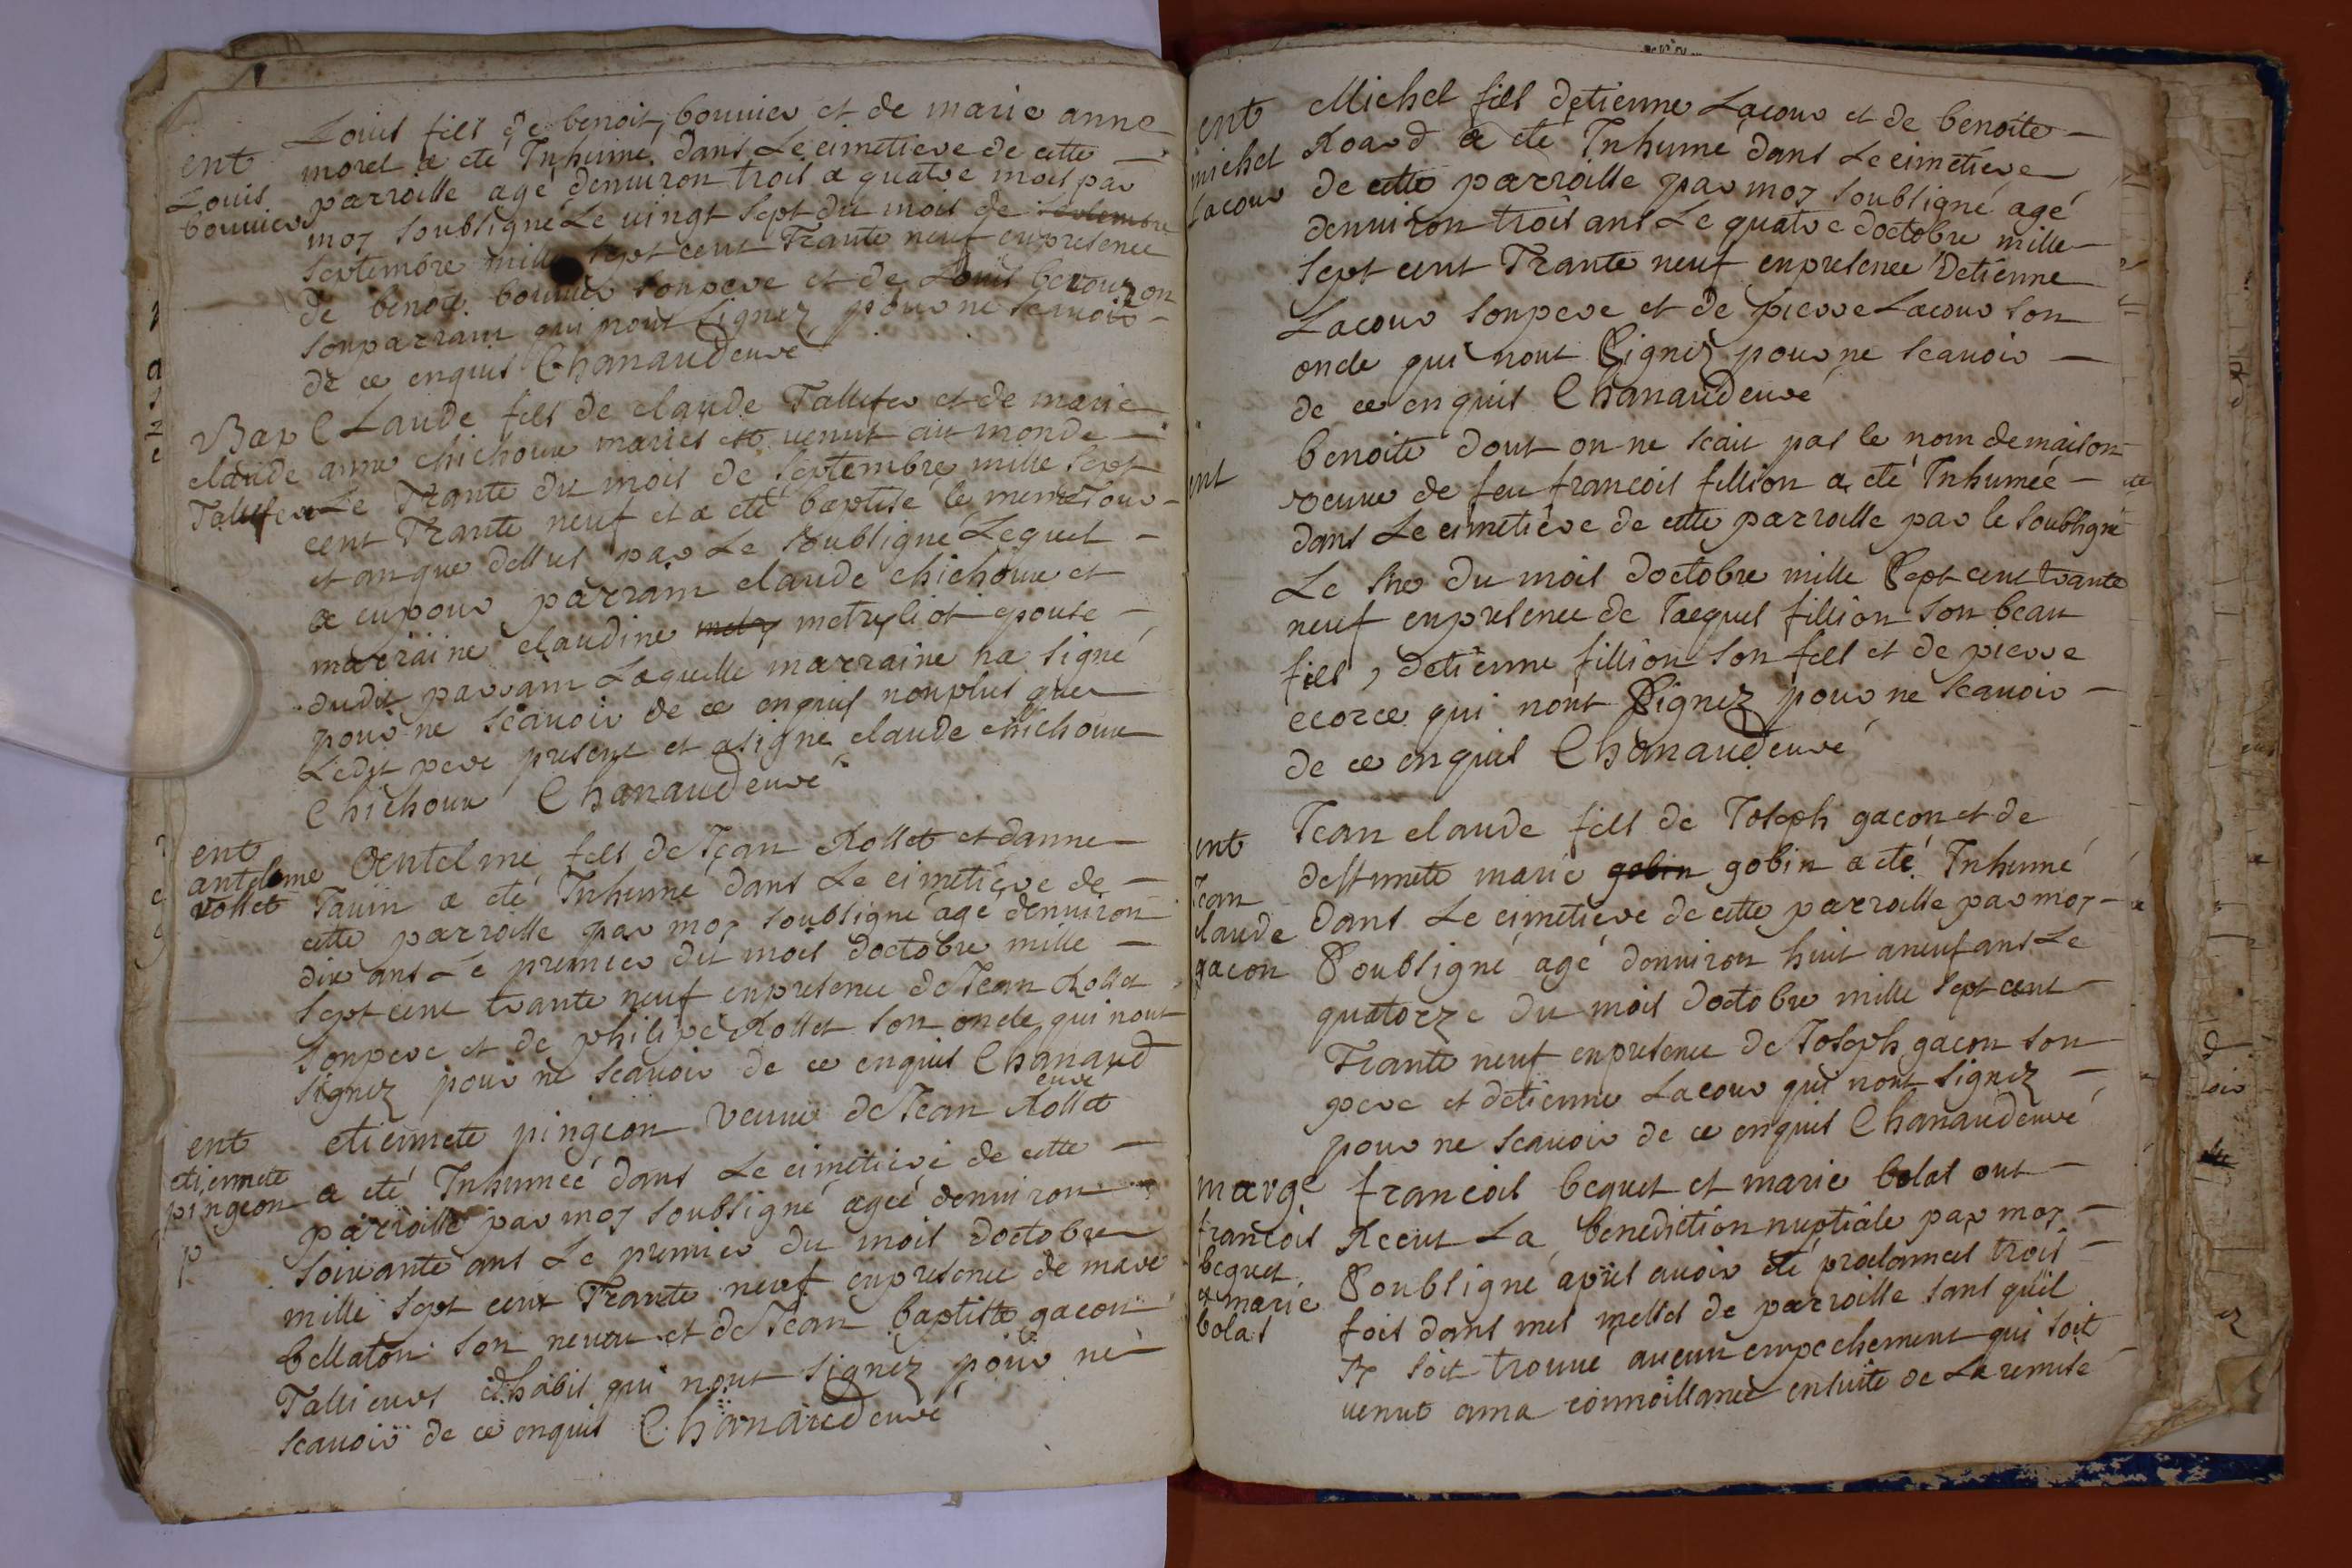 ent
Louis
bouvier
Louis fils de benoit bouvier et de marie anne
moret a eté Inhumé dans Le cimetiere de cette
parroisse agé denuiron trois a quatre mois par
moy soubsigné Le uingt sept du mois de septembre
septembre mille sept cent Trante neuf enpresence
de benoit bouvier sonpere et de Louis
sonparrain qui nont signez pour ne scauoir
de ce enquis Chanaud curé
Bap
claude
Tallifer
Claude fils de claude Tallifer et de marie
anne chichoux mariés est uenut au monde
Le Trante du mois de septembre mille sept
cent Trante neuf et a eté baptisé le meme Jour
et an que dessus par Le soubsigné Lequel
a eupour parrain claude chichoux et
marraine claudine metry liot epouse
dudit parrain Laquelle marraine na signé
pour ne scauoir de ce enquis nonplus que
Ledit pere present et asigné claude chichoux
Chichoux Chanaud curé
ent
antelme
rollet
Antelme fils de Jean Rollet et danne
Tauin a eté Inhumé dans Le cimetiere de
cette parroisse par moy soubsigné agé denuiron
dix ans Le premier du mois doctobre mille
sept cent trante neuf enpresence de Jean Rollet
sonpere et de philipe Rollet son oncle qui nont
signez pour ne scauoir de ce enquis Chanaud
curé
ent
etiennete
pingeon
p
etiennete pingeon veuue de Jean Rollet
a eté Inhumée dans Le cimetiere de cette
parroisse par moy soubsigné ageé denuiron
soixante ans Le premier du mois doctobre
mille sept cent Trante neuf enpresence de marc
bellaton son neueu et de Jean baptiste gacon
Tallieurs dhabis qui nont signez pour ne
scauoir de ce enquis Chanaud curé
ent
michel
Lacour
Michel fils detienne Lacour et de benoite
Roard a eté Inhumé dans Le cimetiere
de cette parroisse par moy soubsigné agé
denuiron trois ans Le quatre doctobre mille
sept cent Trante neuf enpresence detienne
Lacour sonpere et de pierre Lacour son
oncle qui nont signez pour ne scauoir
de ce enquis Chanaud curé
ent
benoite dont on ne scait pas le nom demaison
veuue de feu francois fillion a eté Inhumée
dans Le cimetiere de cette parroisse par le soubsigné
Le six du mois doctobre mille sept cent trante
neuf enpresence de Jacques fillion son beau
fils, detienne fillion son fils et de pierre
ecorce qui nont signez pour ne scauoir
de ce enquis Chanaud curé
ent
Jean
claude
gacon
Jean claude fils de Joseph gacon et de
deffunete marie gobin gobin a eté Inhumé
dans Le cimetiere de cette parroisse par moy
soubsigné agé denuiron huit aneuf ans Le
quatorze du mois doctobre mille sept cent
Trante neuf enpresence de Joseph gacon son
pere et detienne Lacour qui nont signez
pour ne scauoir de ce enquis Chanaud curé
marge
francois
bequet
et marie
bolas
francois bequet et marie bolas ont
Receut La benediction nuptiale par moy
soubsigné apres auoir eté proclamés trois
fois dans mes messes de parroisse sans quil
sy soit trouué aucun empechement qui soit
uenut ama connoissance ensuite de La remise